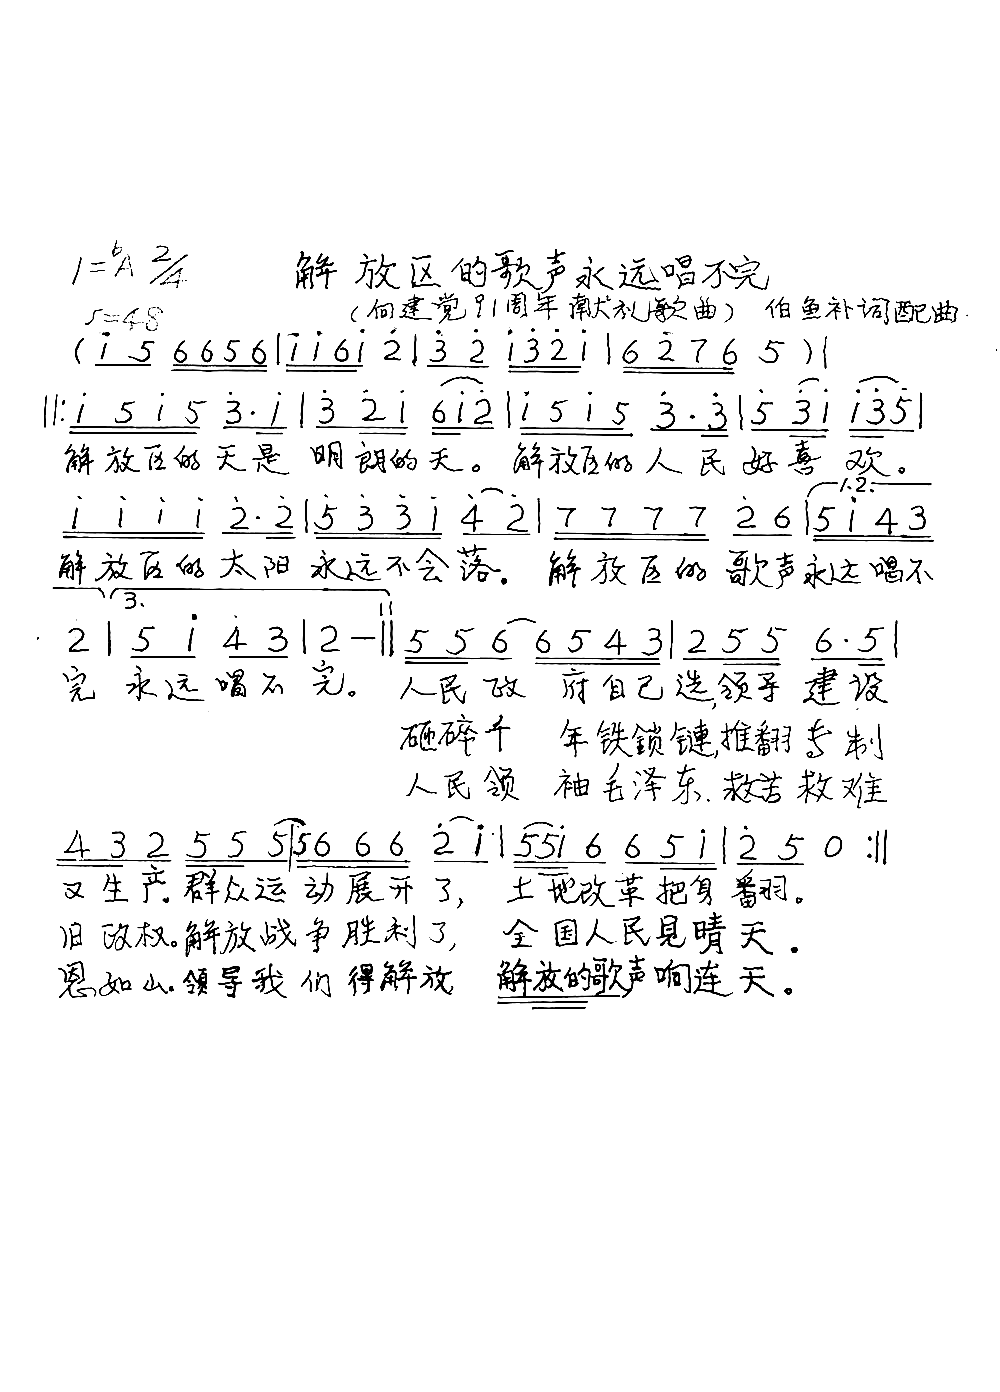 1=ᵇA 2/4 解放区的歌声永远唱不完
♩=48 (向建党91周年献礼歌曲) 伯鱼补词配曲
( i 5 6656 | i i6i 2 | 3 2 i32i | 6 276 5 ) |
||: i 5 i 5 3·i | 3 2 i 6i2 | i 5 i 5 3·3 | 5 3i i35 |
解放区的天是 明朗的天。 解放区的人民好喜欢。
1.2.
i i i i 2·2 | 5 3 3 i 4 2 | 7 7 7 7 2 6 | 5 i 4 3
解放区的太阳永远不会落。 解放区的歌声永远唱不
3.
2 | 5 i 4 3 | 2 — || 5 5 6 6 5 4 3 | 2 5 5 6·5 |
完 永远唱不完。 人民政府自己选,领导建设
砸碎千年铁鎖鏈,推翻专制
人民领袖毛泽东.救苦救难
4 3 2 5 5 5 | 5 6 6 6 2 i | 5 5 i 6 6 5 i | 2 5 0 :||
又生产.群众运动展开了, 土地改革把身翻。
旧政权。解放战争胜利了, 全国人民见晴天.
恩如山.领导我们得解放 解放的歌声响连天。